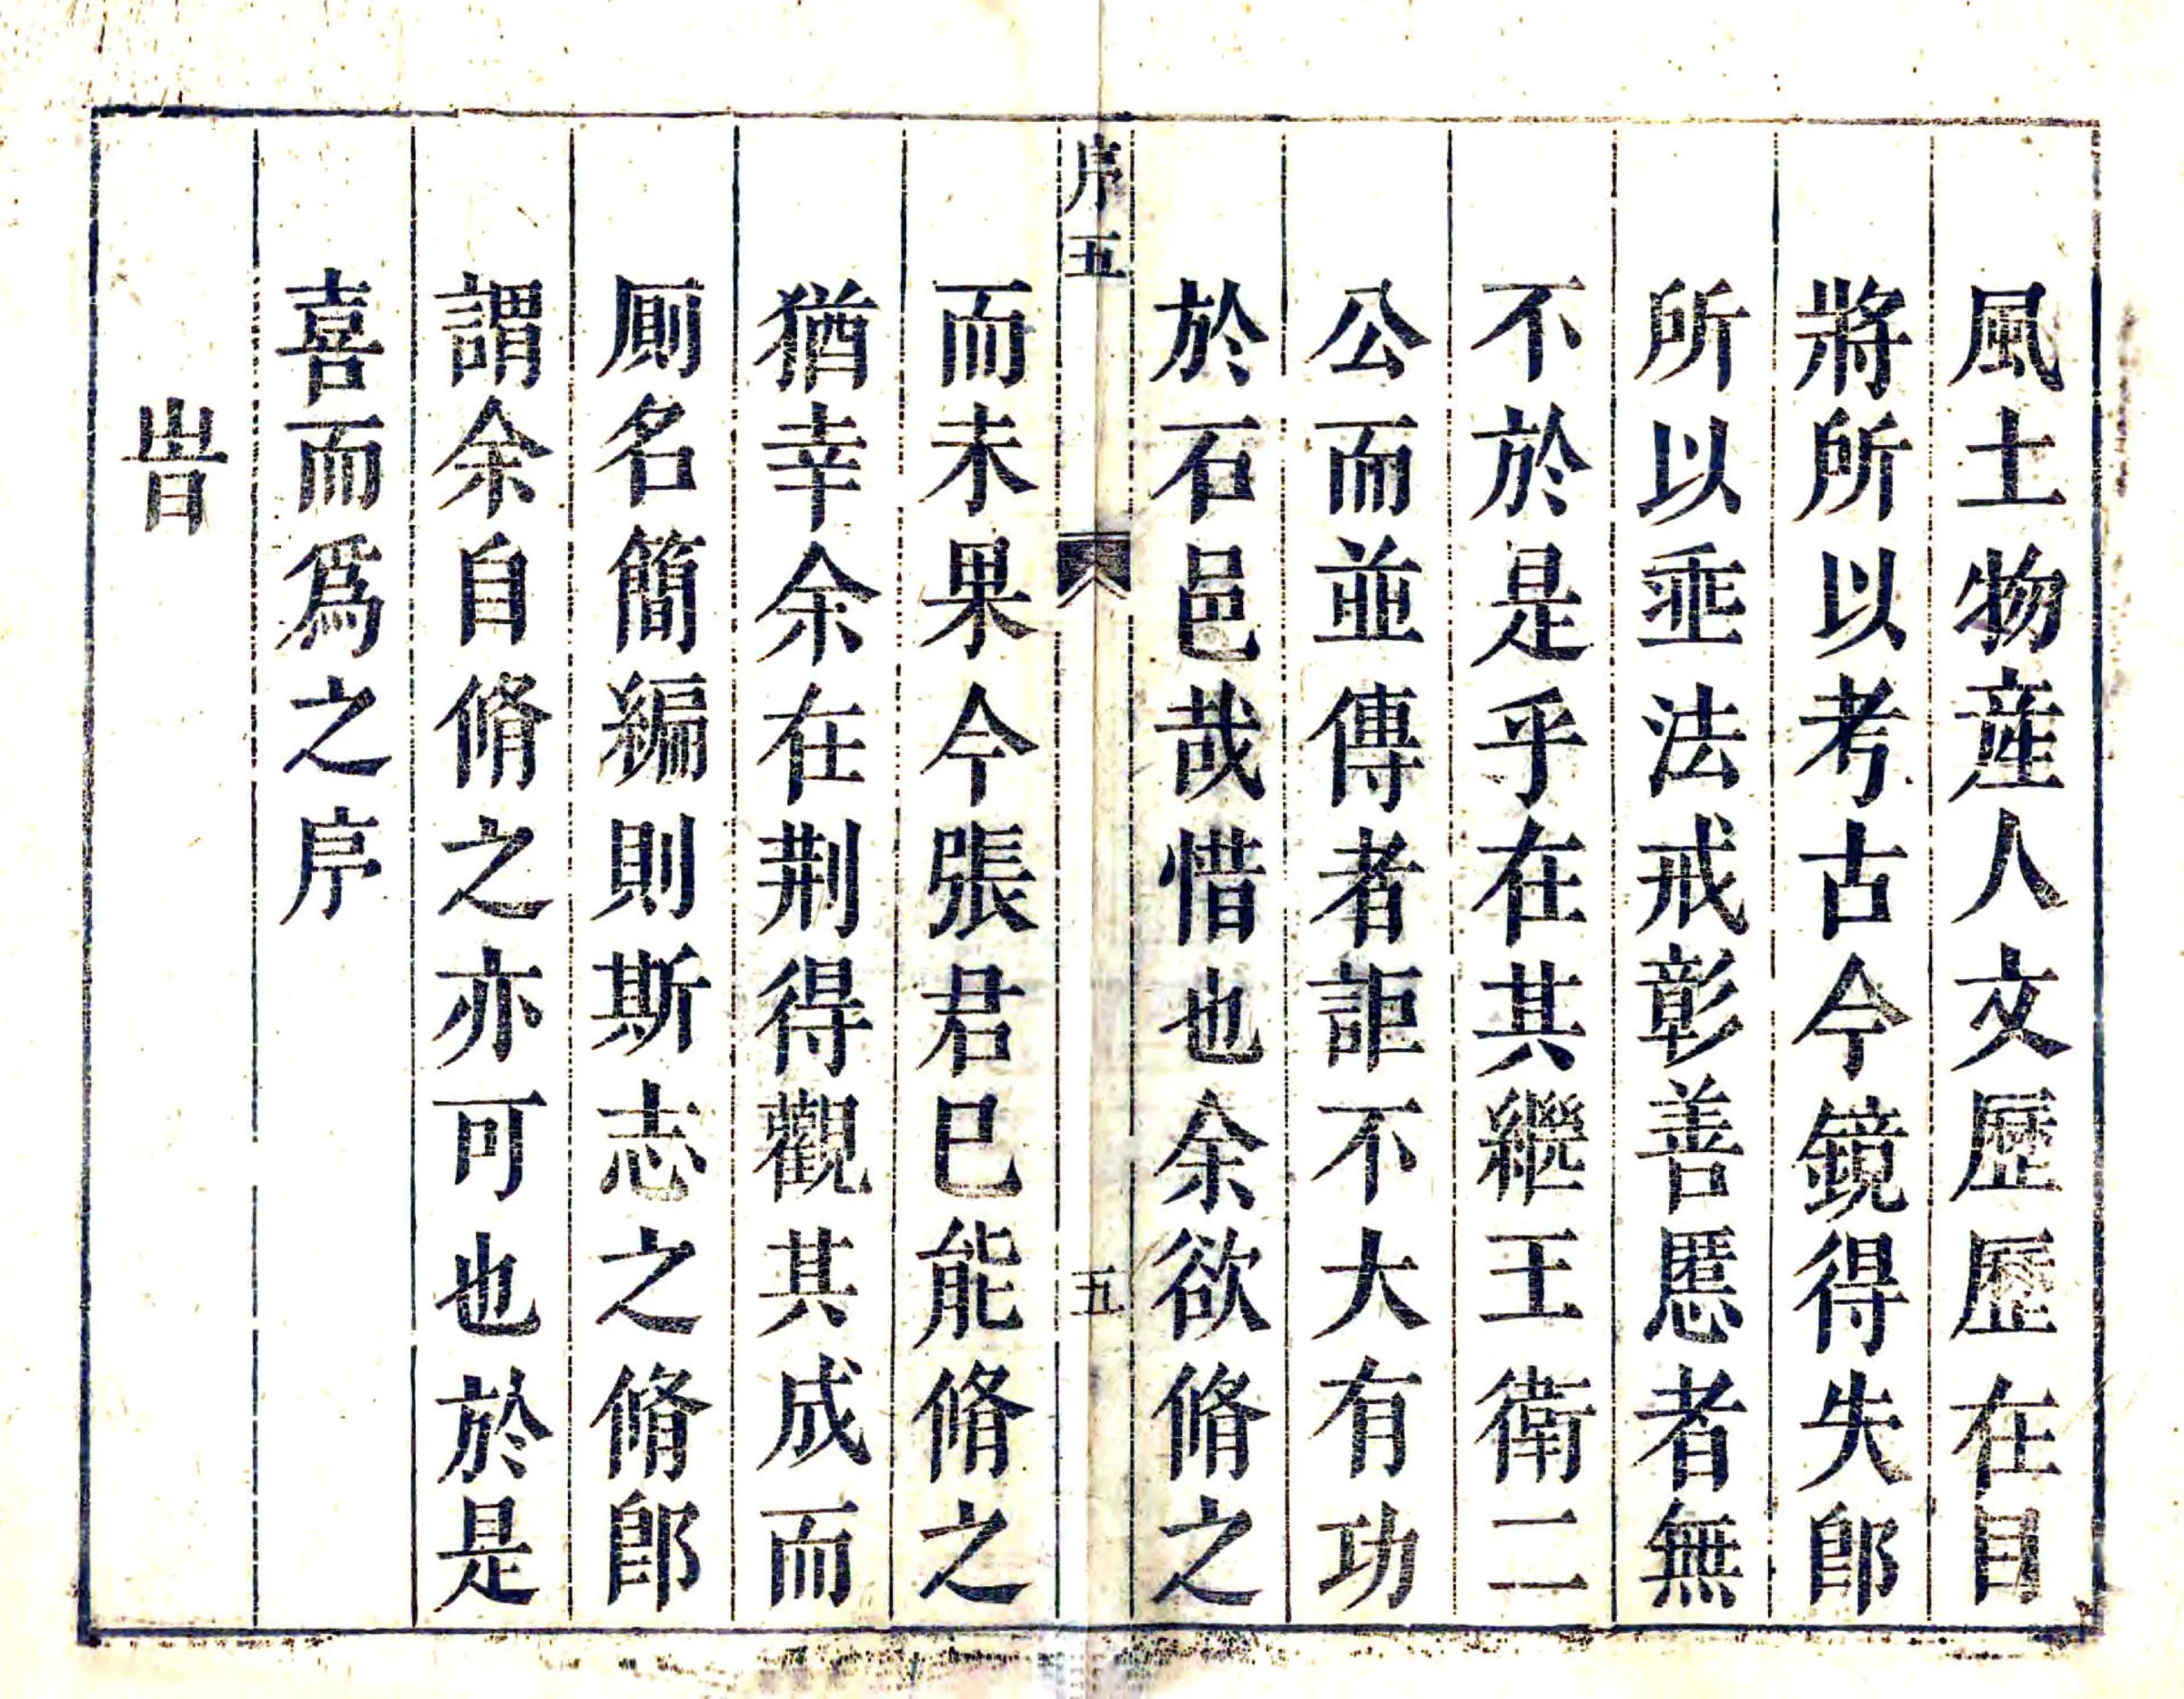 風土物產人文歷歷在目
將所以考古今鏡得失郎
所以乖法戒彰善慝者無
不於是乎在其繼王衛二
公而並傳者詎不大有功
於石邑哉惜也余欲脩之
序五
五
而未果今張君巳能脩之
猶幸余在荆得觀其成而
厠名簡編則斯志之脩郎
謂余自脩之亦可也於是
喜而爲之序
旹